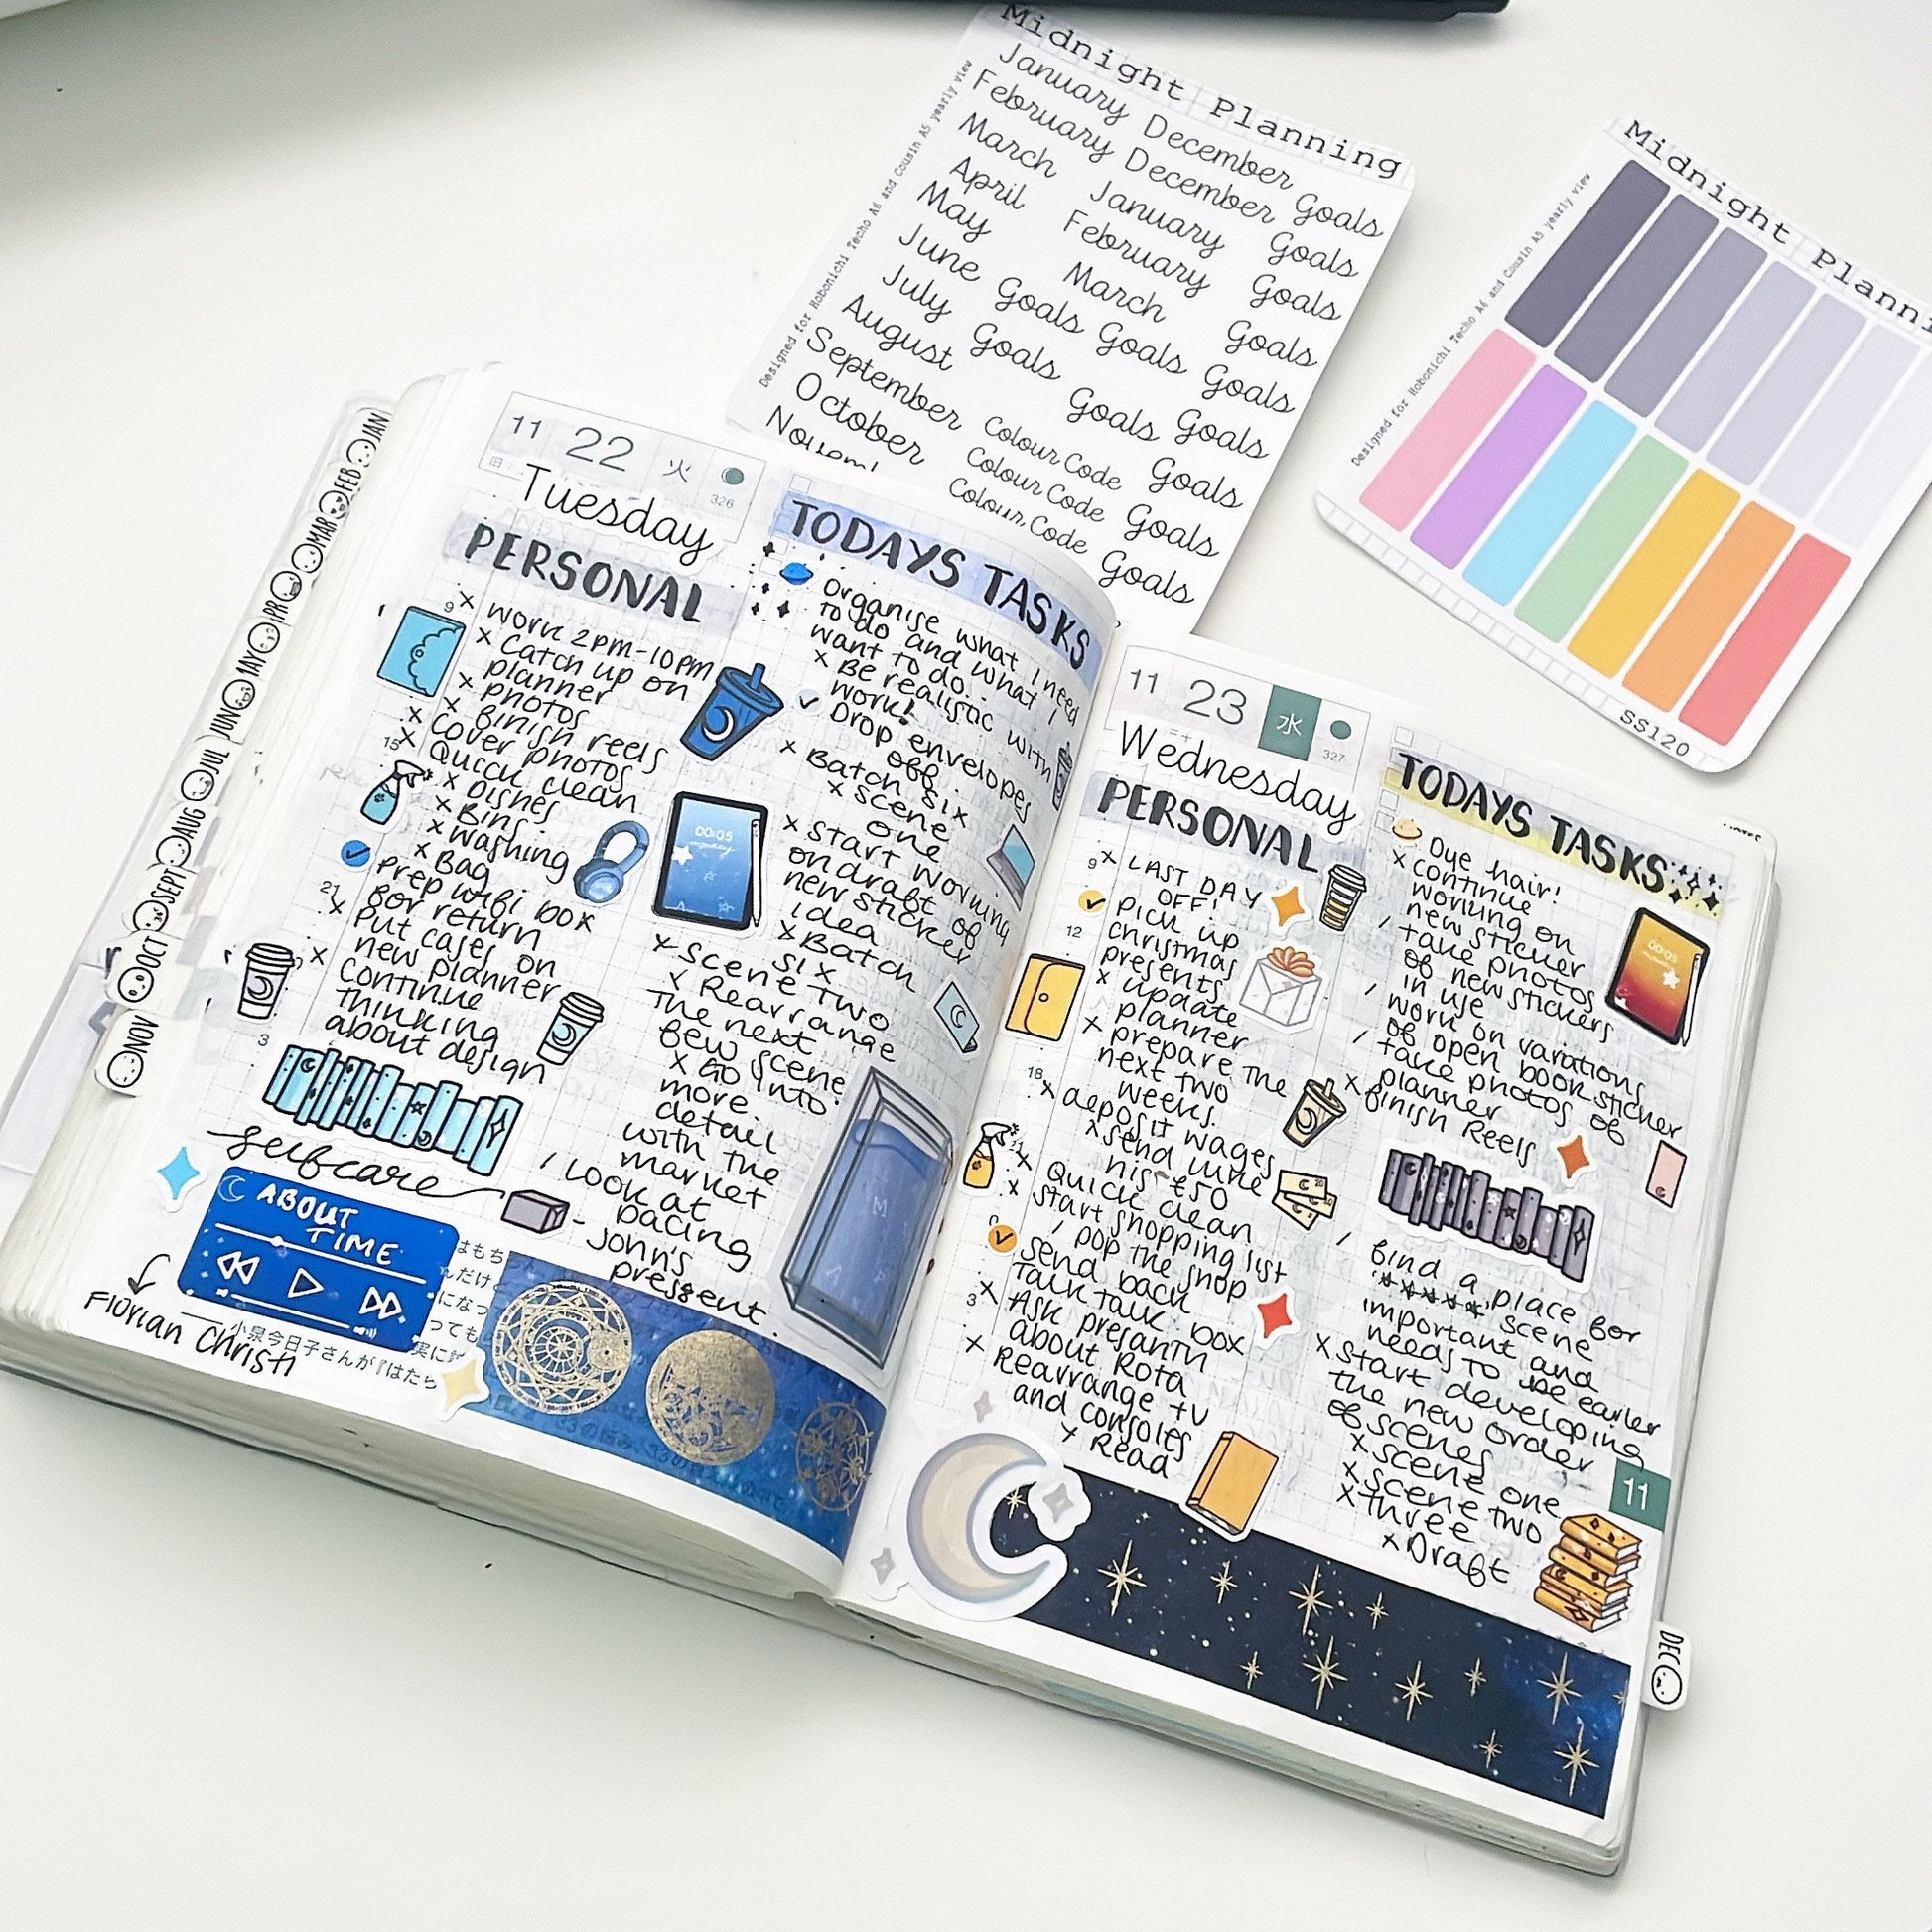 Midnight Planning
January December
February December Goals
March January Goals
April February Goals
May March Goals
June Goals Goals Goals
July Goals Goals Goals
August
September Colour Code Goals
October Colour Code Goals
Colour Code Goals
Designed for Hobonichi Techo A6 and Cousin A5 yearly view
Midnight
Designed for Hobonichi Techo A6 and Cousin A5 yearly view
SS120
JAN
FEB
MAR
MAY
JUN
JUL
AUG
SEPT
OCT
NOV
11 22 火
326
Tuesday
PERSONAL
9
x Work 2pm-10pm
x Catch up on
planner
x photos
x finish reels
x Cover photos
15
x Quick clean
x Dishes
x Bins
x Washing
x Bag
prep wifi box
for return
21
x Put cases on
new planner
x Continue
thinking
about design
3
selfcare
ABOUT
TIME
Florian Christl
小泉今日子さんが『はたら
TODAYS TASKS
Organise what I need
to do and what I
want to do.
x Be realistic with
work!
✓ Drop envelopes
off.
x Batch six
x scene
one
x start working
on draft of
new sticker
idea
x Batch
six
x Scene two
x Rearrange
the next
few scene
x Go into
more
detail
with the
market
/ Look at
pacing
- John's
present.
00:05
11 23 水
327
Wednesday
PERSONAL
9
x LAST DAY
OFF!
✓ pick up
12
christmas
presents
x update
planner
x prepare the
next two
weeks.
18
x deposit wages
x send
his £50
x Quick clean
x start shopping list
/ pop the shop
✓ send back
Talk talk box
3
x Ask
about Rota
x Rearrange tv
and consoles
x Read
TODAYS TASKS
Dye hair!
x continue
working on
new sticker
/ take photos
of new stickers
in use
/ work on variations
of open book sticker
/ take photos of
planner
x finish Reels
00:05
/ find a place for
scene
important and
needs to be earlier
x start developing
the new order
of scenes
x scene one
x scene two
x three
x Draft
11
DEC